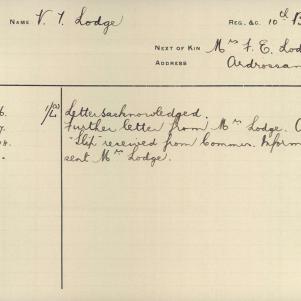 NAME V. T. Lodge REG. &C. 10th B
NEXT OF KIN Mrs F. E. Lod
ADDRESS Ardrossan
6. Letters acknowledged.
7. Further letter from Mrs Lodge.
8. "Slip" received from Commun. Inform
sent Mrs Lodge.